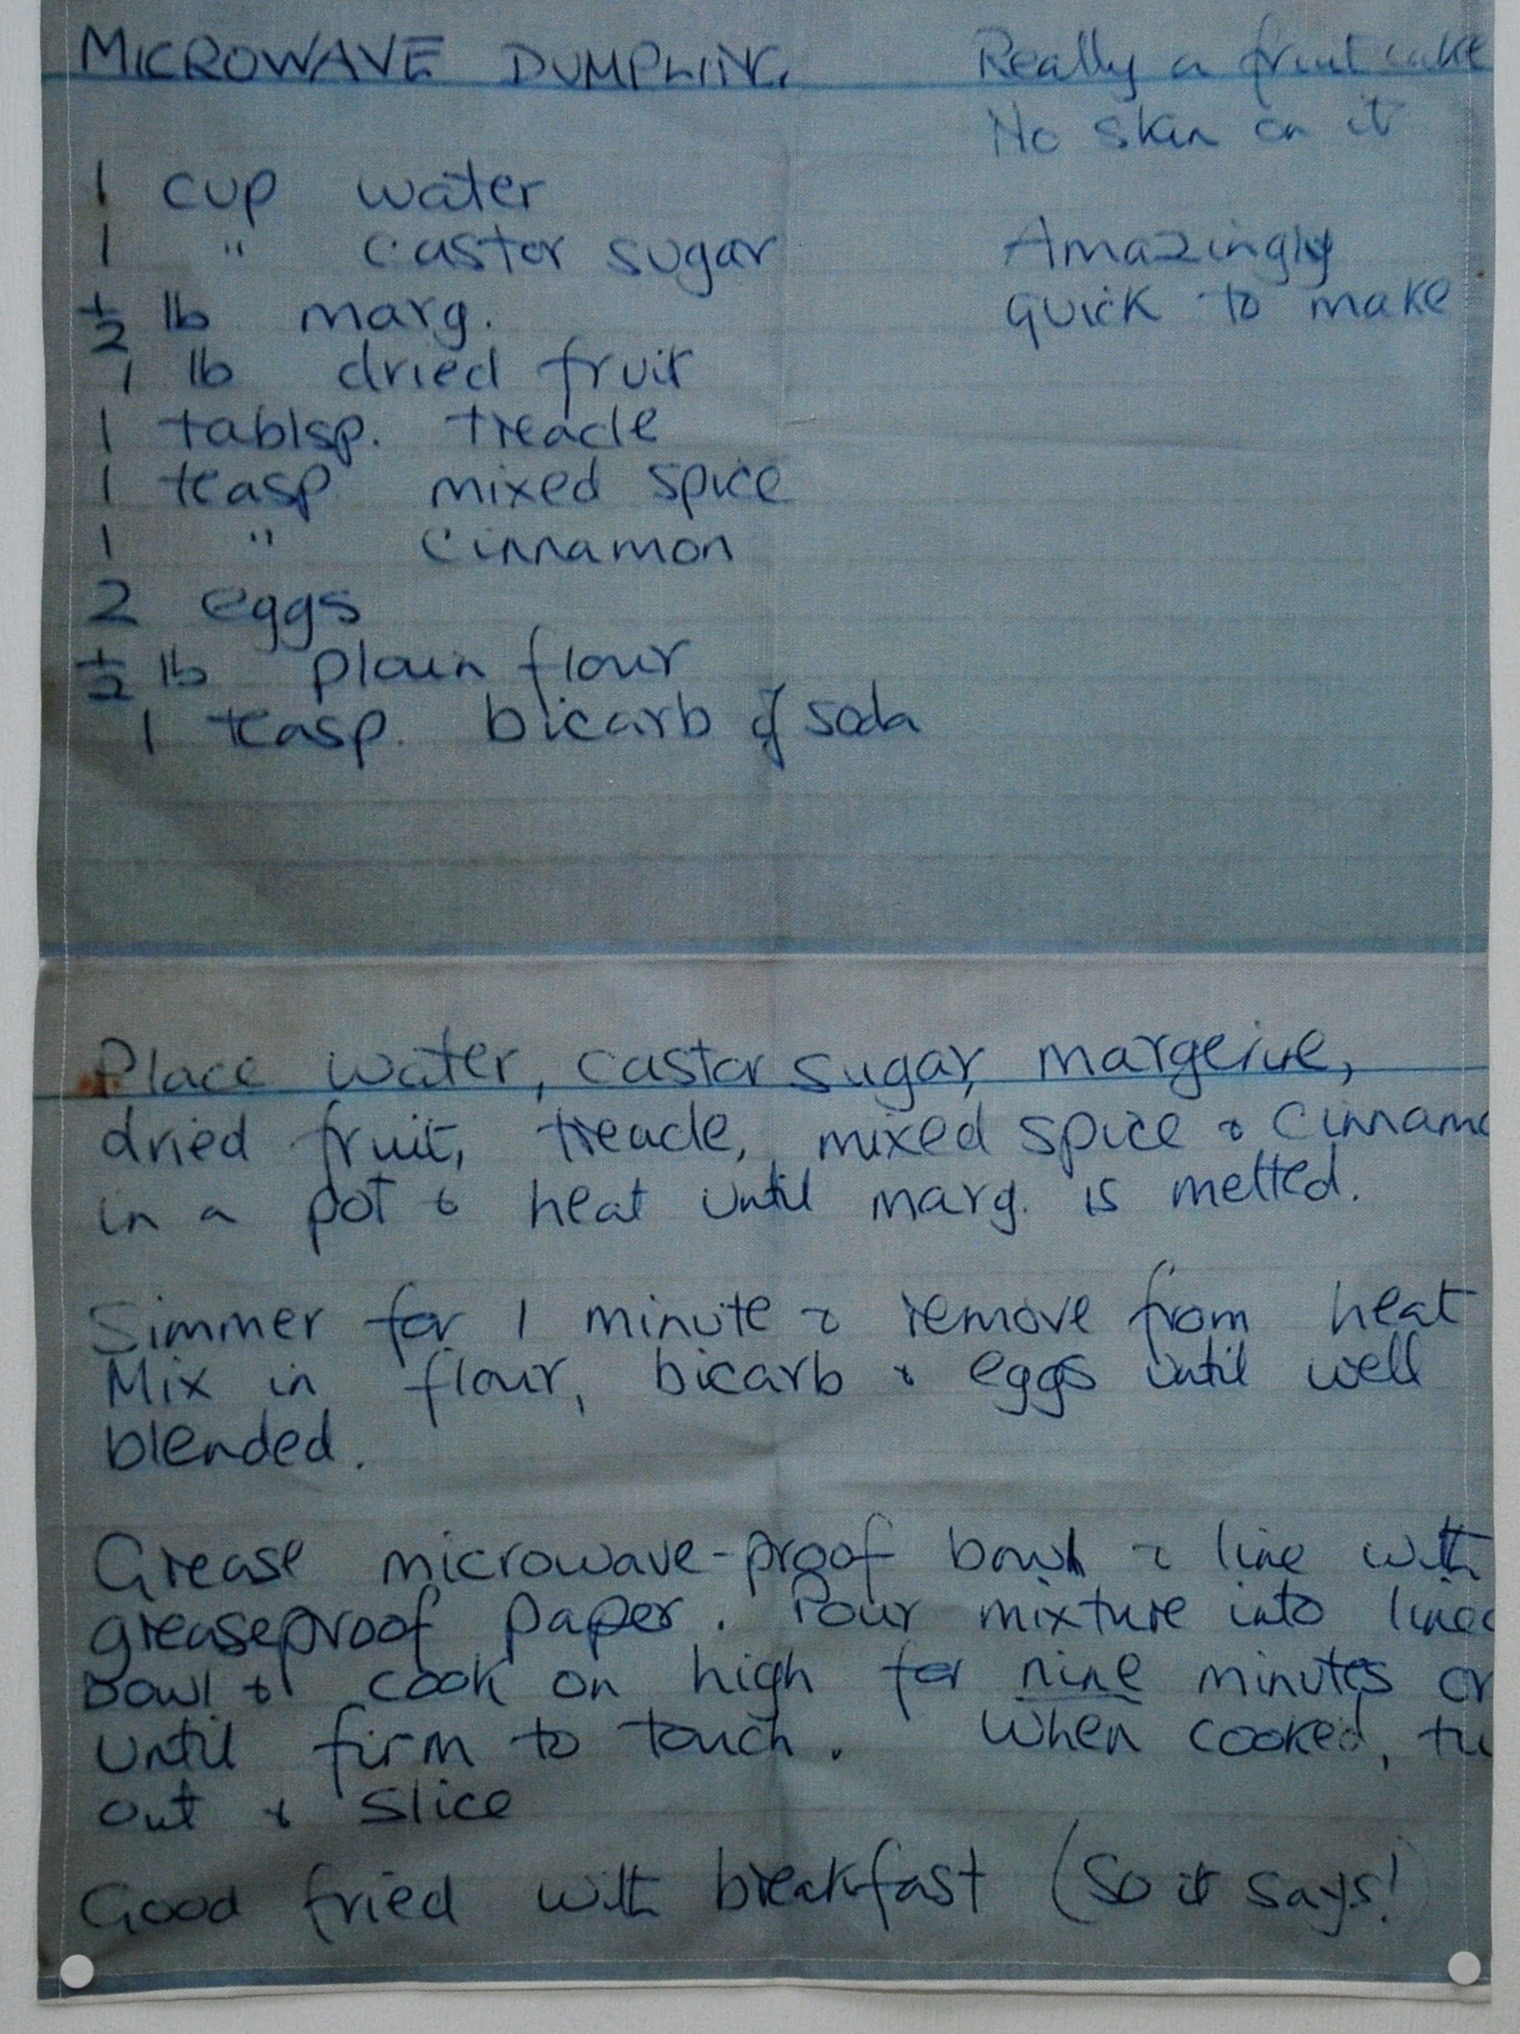 MICROWAVE DUMPLING
Really a fruit cake
No skin on it
1 cup water
1 " castor sugar
Amazingly
quick to make
½ lb marg.
1 lb dried fruit
1 tablsp. treacle
1 teasp. mixed spice
1 " cinnamon
2 eggs
½ lb plain flour
1 teasp. bicarb of soda
Place water, castor sugar, margerine,
dried fruit, treacle, mixed spice & cinnamo
in a pot & heat until marg. is melted.
Simmer for 1 minute & remove from heat
Mix in flour, bicarb & eggs until well
blended.
Grease microwave-proof bowl & line with
greaseproof paper. Pour mixture into lined
bowl & cook on high for nine minutes or
until firm to touch. When cooked, tu
out & slice
Good fried with breakfast (So it says!)